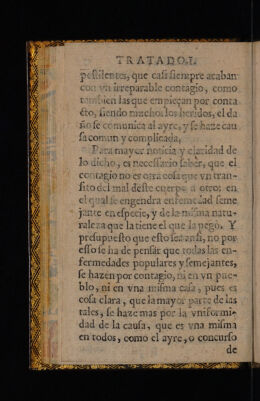 TRATADO.I.
pestilentes, que casi siempre acaban
con vn irreparable contagio, como
tambien las que empieçan por conta
cto, siendo muchos los heridos, el da
ño se comunica al ayre, y se haze cau
sa comun y complicada.
Para mayor noticia y claridad de
lo dicho, es necessario saber, que el
contagio no es otra cosa que vn tran-
sito del mal deste cuerpo a otro; en
el qual se engendra enfermedad seme
jante en especie, y de la misma natu-
raleza que la tiene el que la pegò. Y
presupuesto que esto sea ansi, no por
esso se ha de pensar que todas las en-
fermedades populares y semejantes,
se hazen por contagio, ni en vn pue-
blo, ni en vna misma casa, pues es
cosa clara, que la mayor parte de las
tales, se haze mas por la vniformi-
dad de la causa, que es vna misma
en todos, como el ayre, o concurso
de